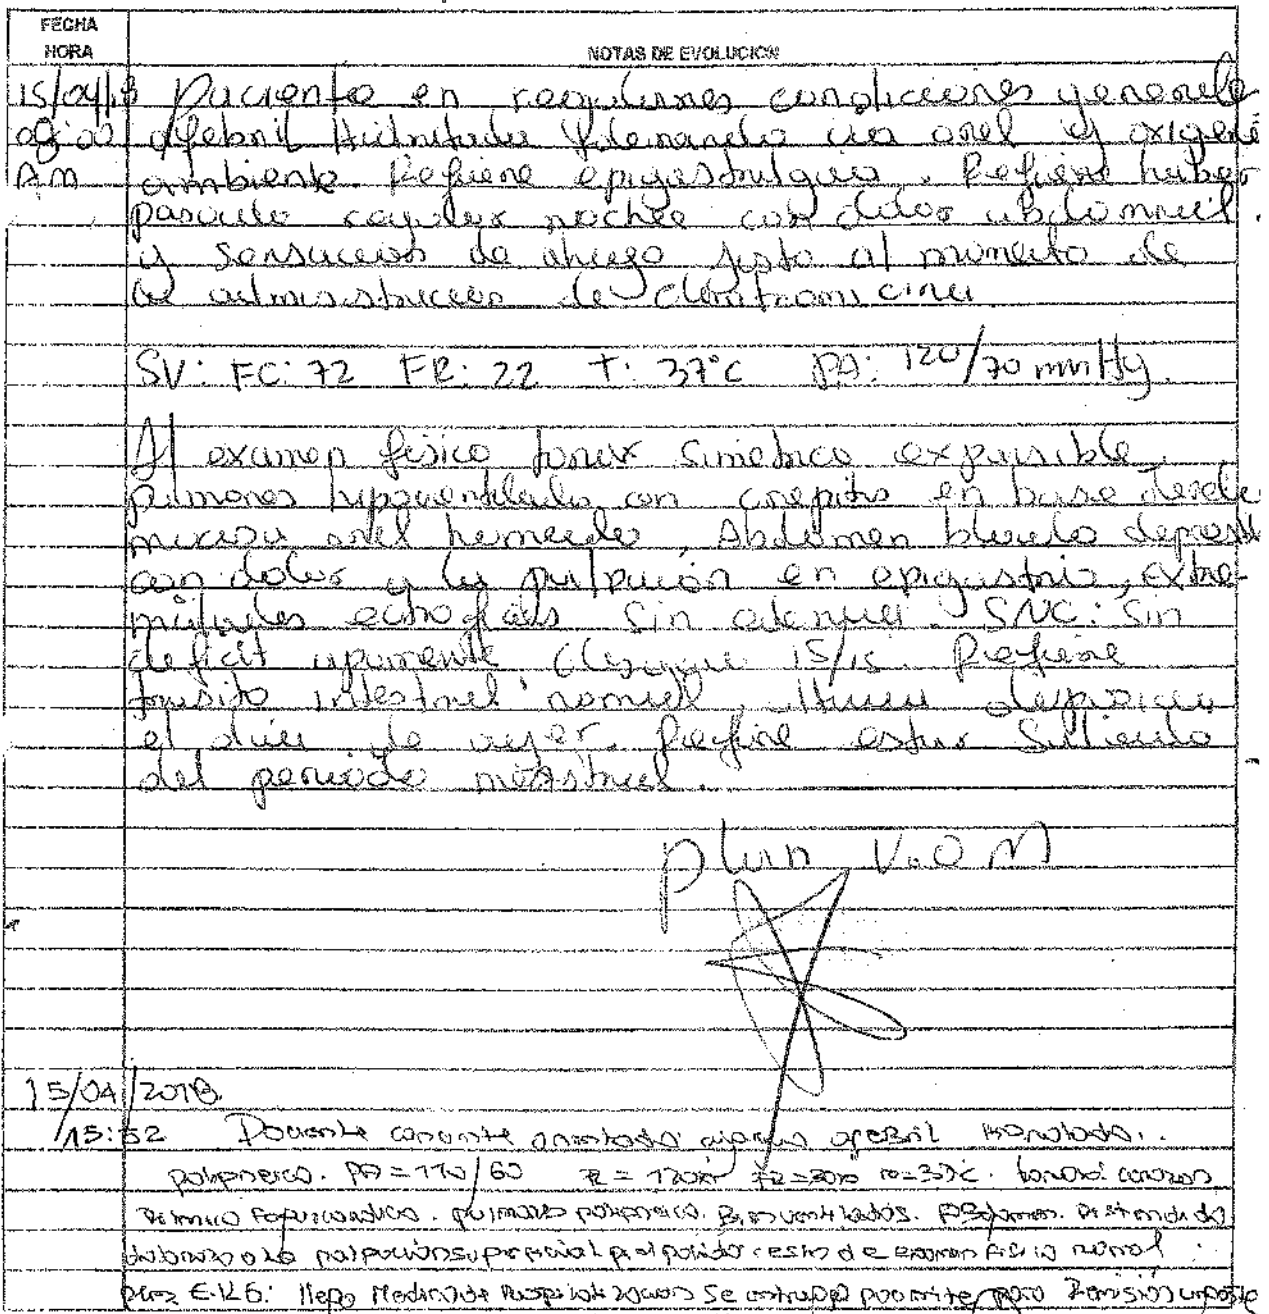 FECHA
HORA
NOTAS DE EVOLUCION
15/04/18 Paciente en regulares condiciones generale
08:00 afebril Hidratada tolerando via oral y oxigeno
AM ambiente. Refiere epigastralgia. Refiere haber
pasado noche con dolor abdominal.
y sensacion de ahogo justo al momento de
la administracion de claritromicina
SV: FC: 72 FR: 22 T: 37°C PA: 120/70 mmHg.
Al examen fisico torax simetrico expansible
pulmones hipoventilados con crepitos en base derecha
mucosa oral humeda, Abdomen blando depresi
con dolor a la palpacion en epigastrio, extre-
midades sin edema. SNC: Sin
deficit aparente Glasgow 15/15. Refiere
transito intestinal normal, deposicion
el dia de ayer. Refiere estar saliendo
del periodo menstrual.
plan V.O M
15/04/2018
15:52 Paciente consciente orientada afebril hidratada.
polipneica. PA=110/60 = 120x' FR=30x = 37°c. torax: corazon
Ritmico . pulmones polipneica. Bien ventilados. Abdomen. Distendido
doloroso a la palpacion superficial resto de examen fisico normal
se entrega paciente para Remision